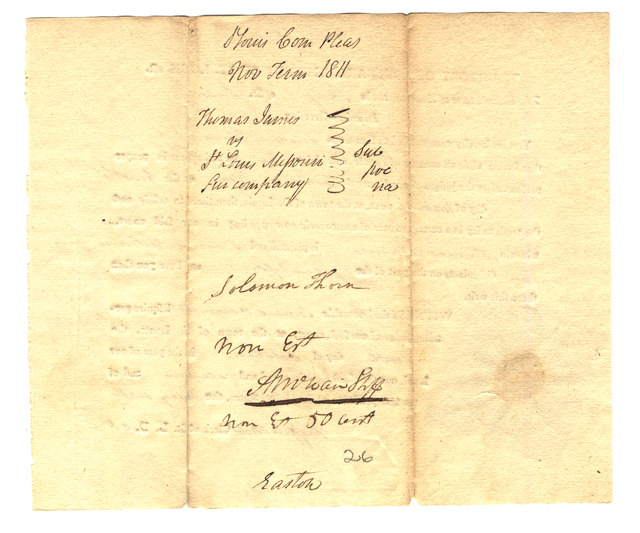 St Louis Com Pleas
Nov Term 1811
Thomas James
vs
St Louis Missouri
Fur company
Sub
poe
na
Solomon Thorn
Non Est
Shff
Non Est 50 cent
26
Easton